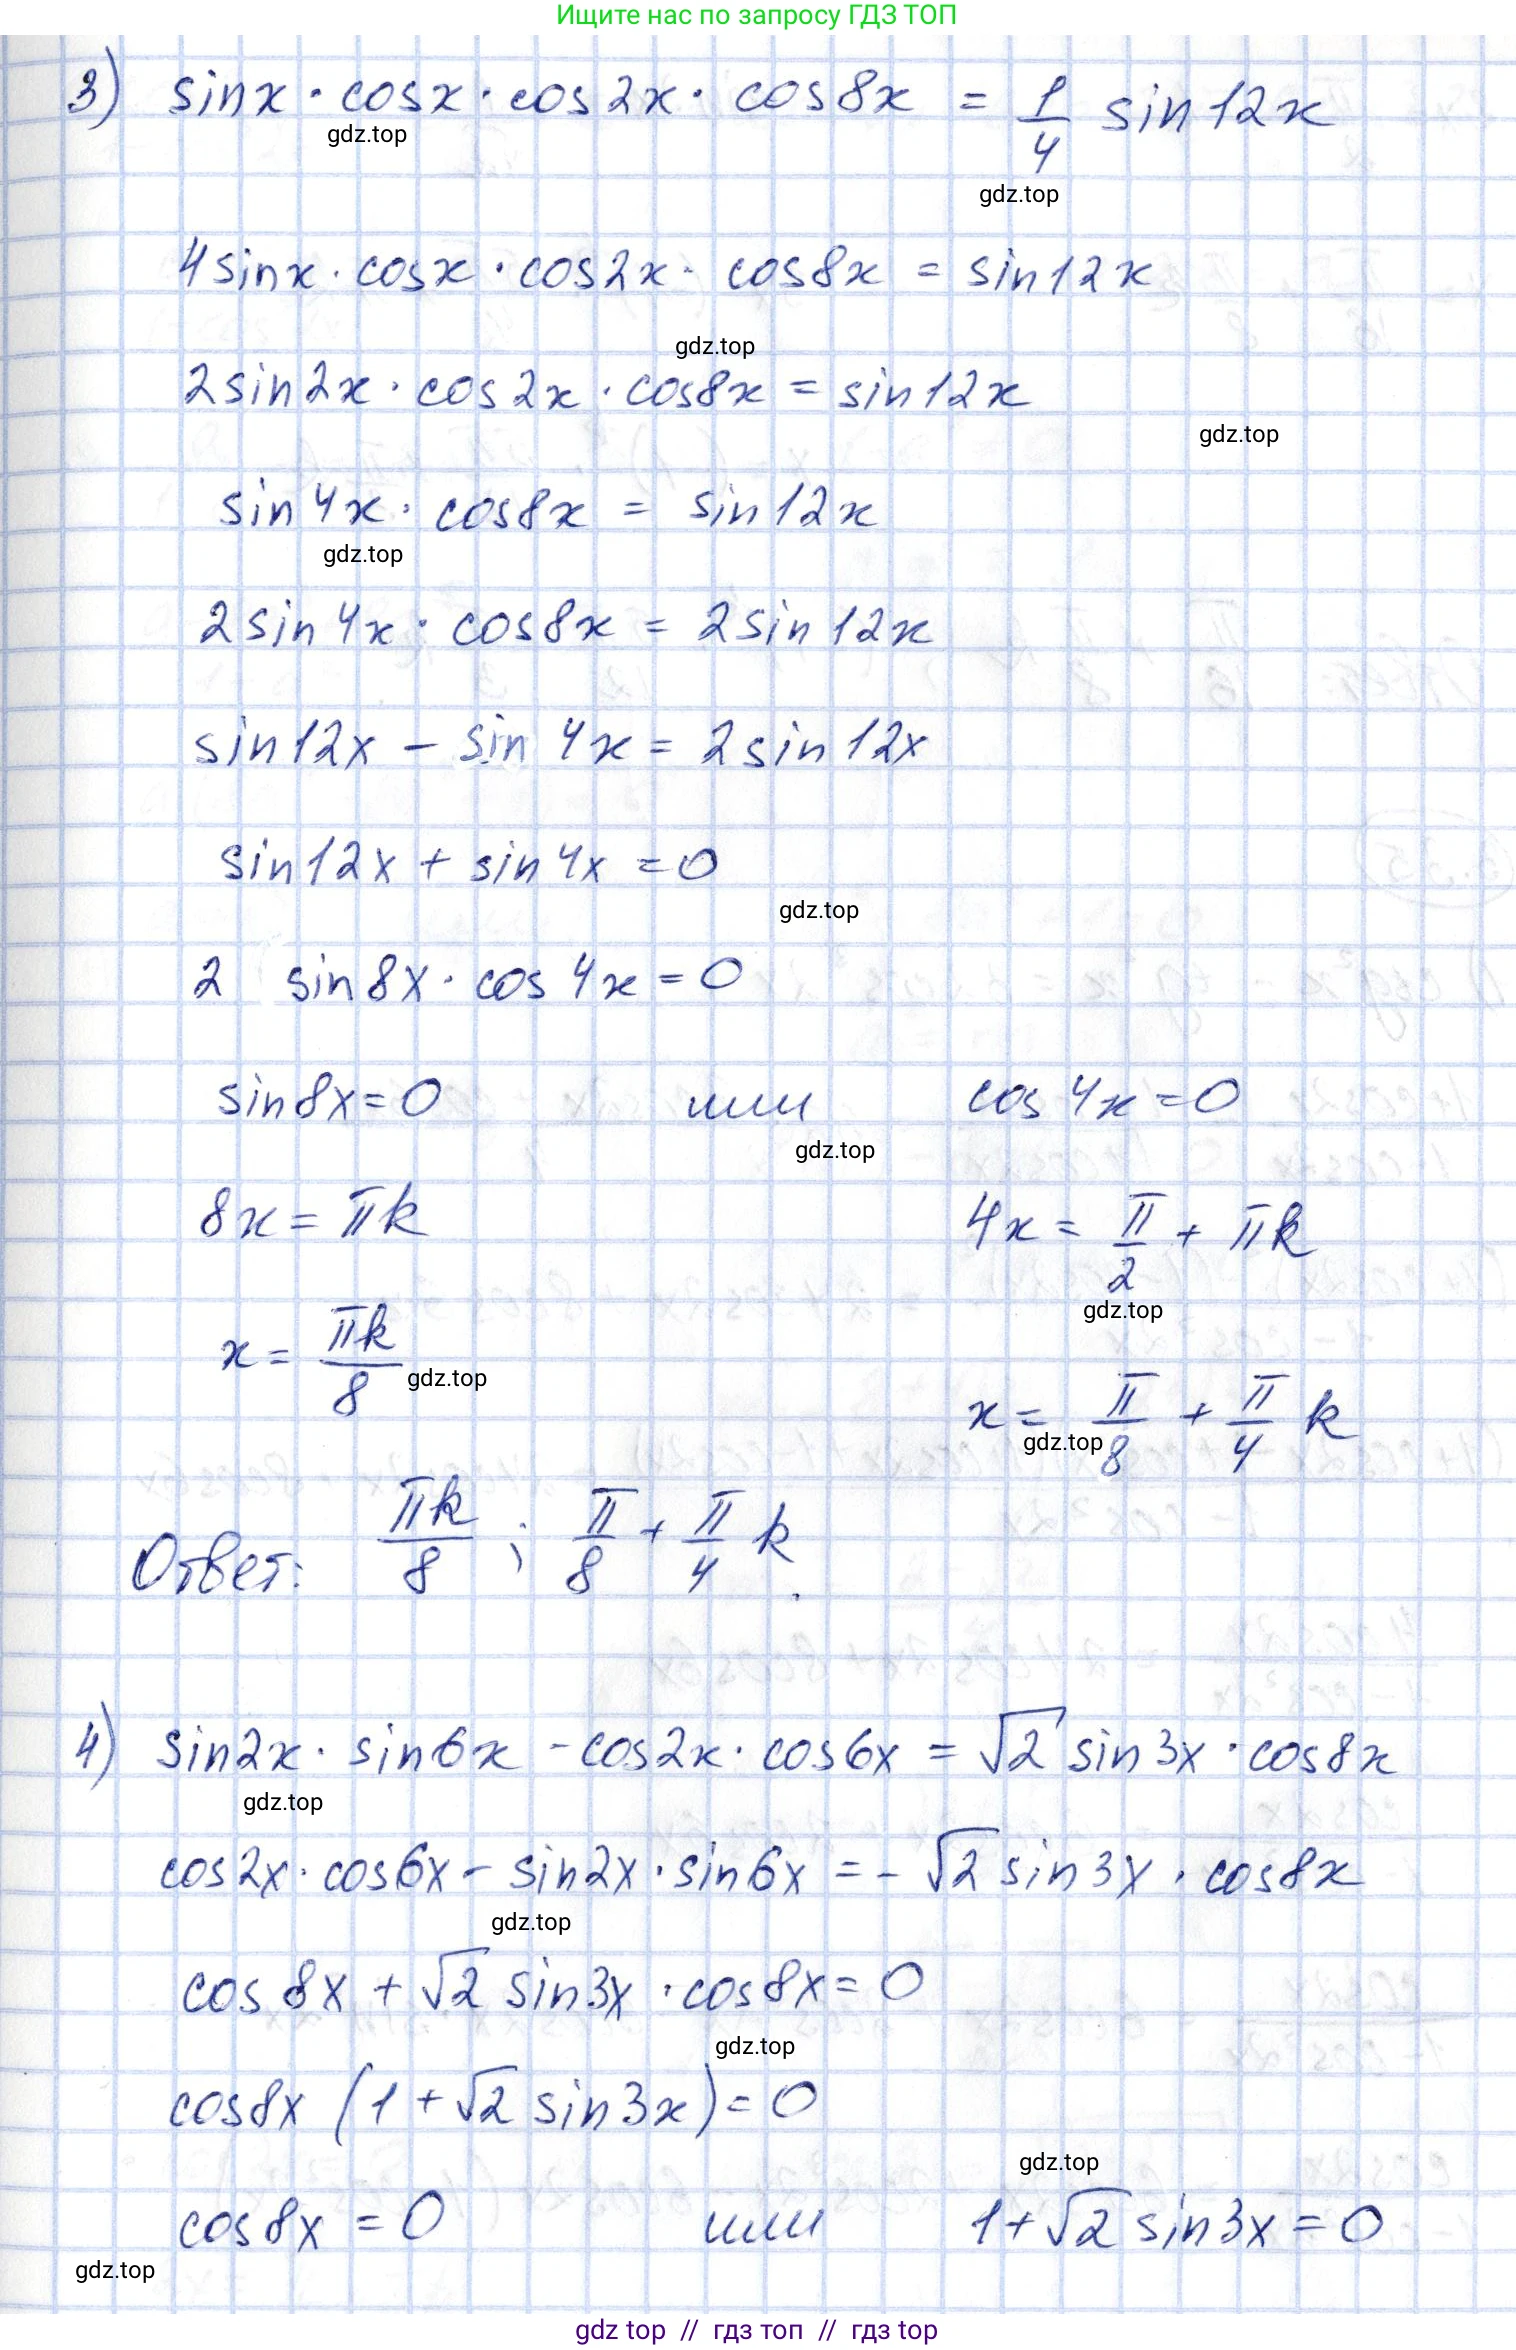 Ищите нас по запросу ГДЗ ТОП
3) sinx · cosx · cos2x · cos8x = 1/4 sin12x
gdz.top
gdz.top
4sinx · cosx · cos2x · cos8x = sin12x
gdz.top
2sin2x · cos2x · cos8x = sin12x
gdz.top
sin4x · cos8x = sin12x
gdz.top
2sin4x · cos8x = 2sin12x
sin12x − sin4x = 2sin12x
sin12x + sin4x = 0
gdz.top
2 sin8x · cos4x = 0
sin8x = 0 или cos4x = 0
gdz.top
8x = πk 4x = π/2 + πk
gdz.top
x = πk/8 gdz.top
x = π/8 + π/4 k
gdz.top
Ответ: πk/8 ; π/8 + π/4 k.
4) sin2x · sin6x − cos2x · cos6x = √2 sin3x · cos8x
gdz.top
cos2x · cos6x − sin2x · sin6x = − √2 sin3x · cos8x
gdz.top
cos8x + √2 sin3x · cos8x = 0
gdz.top
cos8x (1 + √2 sin3x) = 0
gdz.top
cos8x = 0 или 1 + √2 sin3x = 0
gdz.top
gdz top // гдз топ // гдз top